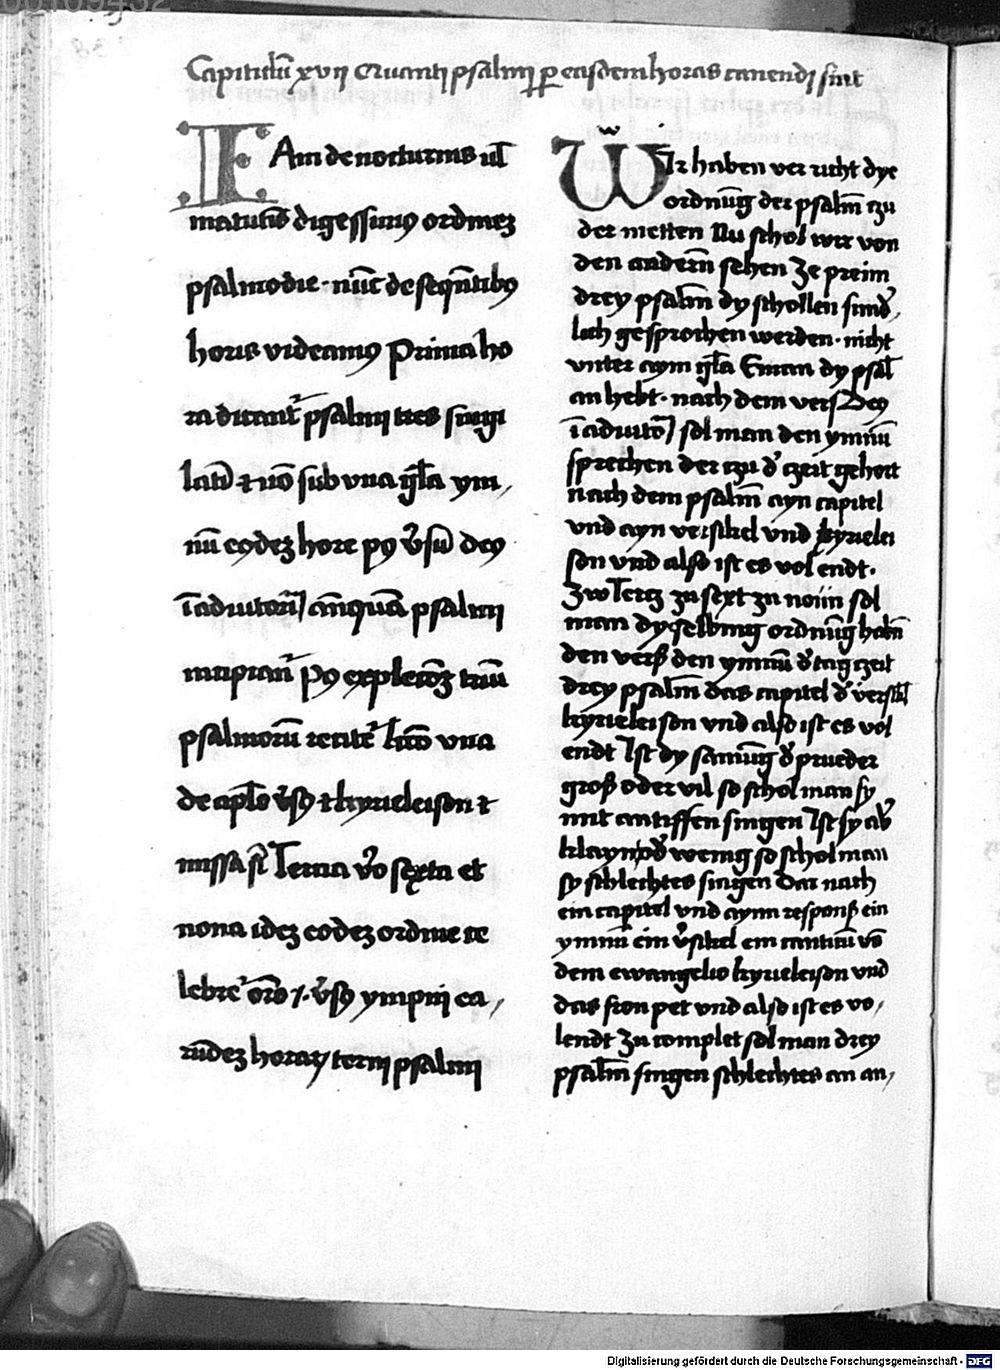 Capitulū xvij Quanti psalmi ꝑ easdem horas canendi sunt
IAm de nocturnis ul̄
matutīs digessimꝰ ordinēꝫ
psalmodie · nūc de seqn̄tibꝰ
horis videamꝰ Prima ho
ra dicant᷑ psalmi tres singi
latī ⁊ nō sub vna gl̄a ym,
nū eꝰdeꝫ hore pꝰ v̓sū deꝰ
ī adiutoriū anqua᷑ psalmi
incipiant᷑ Pꝰ expletōꝫ triū
psalmorū recitet᷑ lectō vna
de apl̄o v̓sꝰ ⁊ kyrieleison ⁊
missa sūt Tercia v̓o sexta et
nona ideꝫ eodeꝫ ordine ce
lebret᷑ orō ⁊ v̓sꝰ ympni ea,
rūdeꝫ horaꝝ terni psalmi
Wir haben ver richt dye
ordnūg der psalm̄ czu
der metten Nu schol wir von
den andern̄ sehen Ze preim
drey psalm̄ dy schollen sund̓,
lich gesprochen werden · nicht
vnter aym gl̄a Eman dy psal̄
an hebt · nach dem vers Deꝰ
ī adiutoꝝ sol man den ymnū
sprechen der czu d̓ czeit gehort
nach dem psalm̄ ayn capitel
vnd ayn versikel vnd kyrielei
son vnd also ist es vol endt ·
Zw Tercz zu sext zu noūn sol
man dy selbing ordnūg habn̄
den verß den ymnū d̓ tag czeit
drey psalm̄ das capitel d̓ versikl
kyrieleison vnd also ist es vol
endt Ist dy samūg d̓ prueder
groß oder vil so schol man sy
mit antiffen singen Ist sy ab̓
klayn od̓ wenig so schol man
sy schlechtes singen Dar nach
ein capitel vnd aynn responß ein
ymnū ein v̓sikel ein canticū vō
dem ewangelio kyrieleison vnd
das fron pet vnd also ist es vo,
lendt Zu complet sol man drey
psalm̄ singen schlechtes an an,
Digitalisierung gefördert durch die Deutsche Forschungsgemeinschaft - DFG